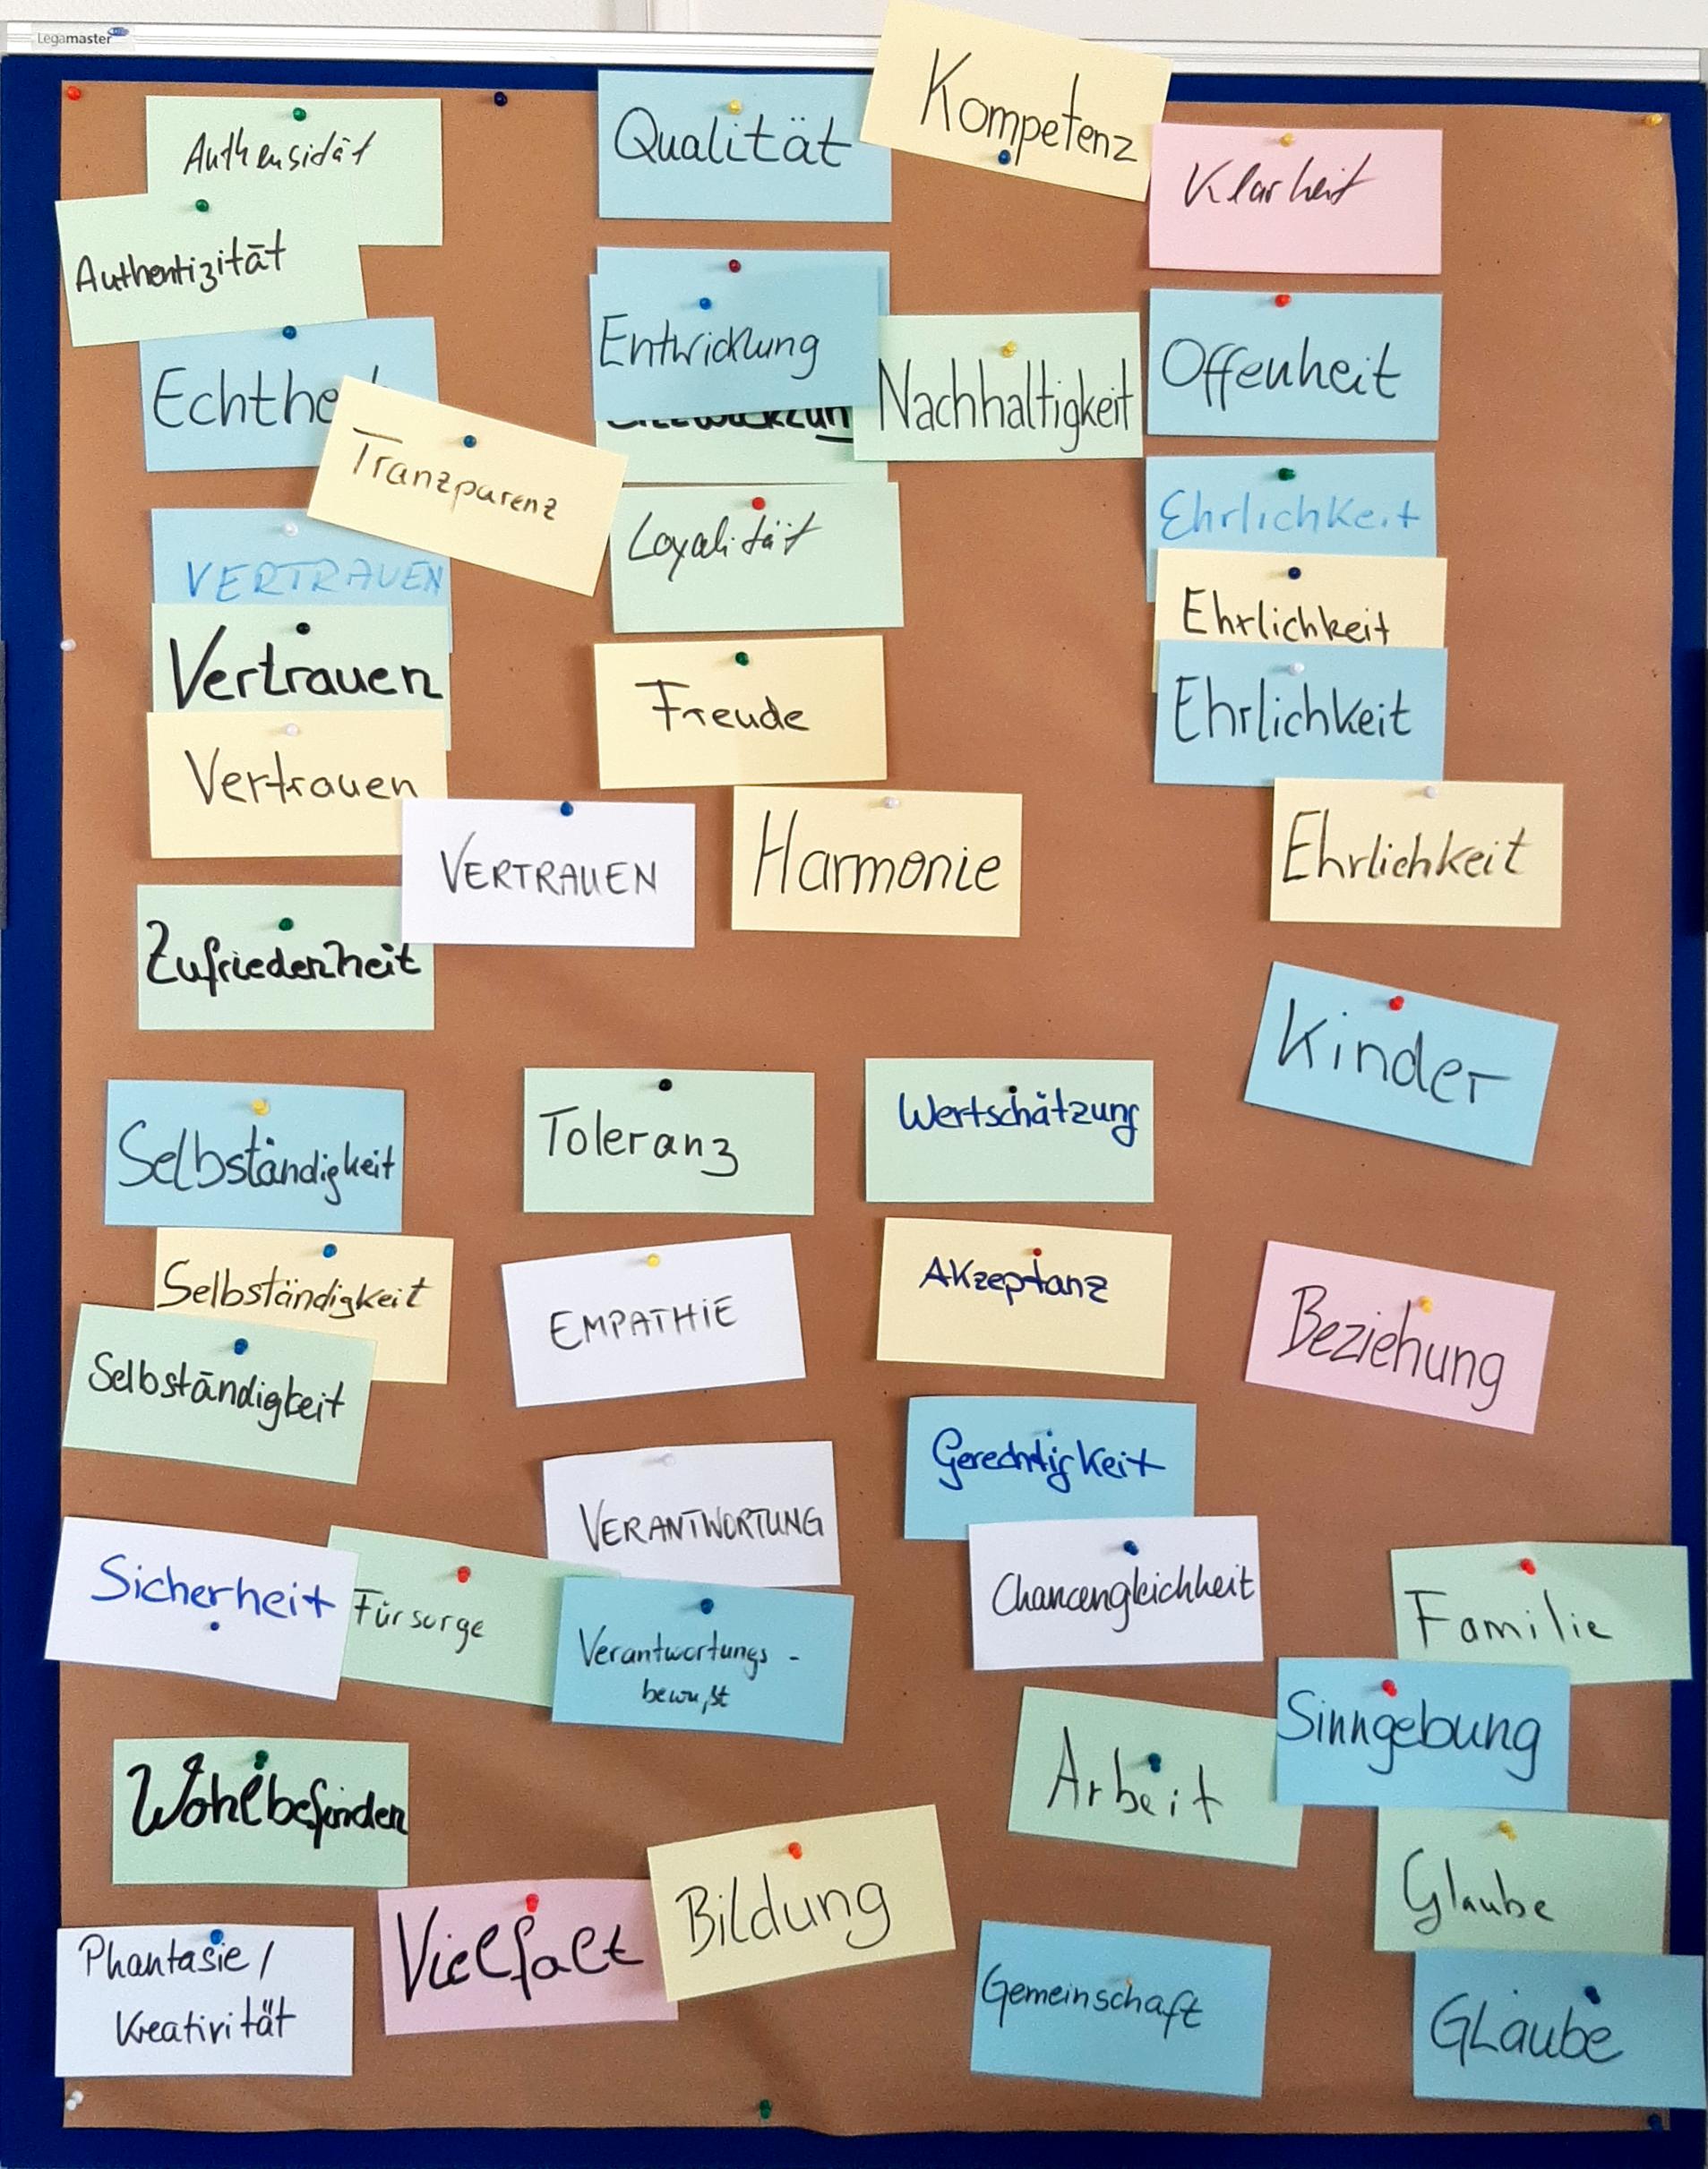 Legamaster
Authensidät
Authentizität
Echthe
Tranzparenz
VERTRAUEN
Vertrauen
Vertrauen
VERTRAUEN
Zufriedenheit
Qualität
Kompetenz
Klarheit
Entwicklung
Nachhaltigkeit
Offenheit
Loyalität
Freude
Harmonie
Ehrlichkeit
Ehrlichkeit
Ehrlichkeit
Ehrlichkeit
Kinder
Selbständigkeit
Selbständigkeit
Selbständigkeit
Toleranz
Wertschätzung
EMPATHIE
Akzeptanz
Beziehung
Gerechtigkeit
VERANTWORTUNG
Chancengleichheit
Sicherheit
Fürsorge
Verantwortungs-
bewußt
Familie
Sinngebung
Arbeit
Glaube
GLaube
Wohlbefinden
Vielfalt
Bildung
Phantasie/
Kreativität
Gemeinschaft